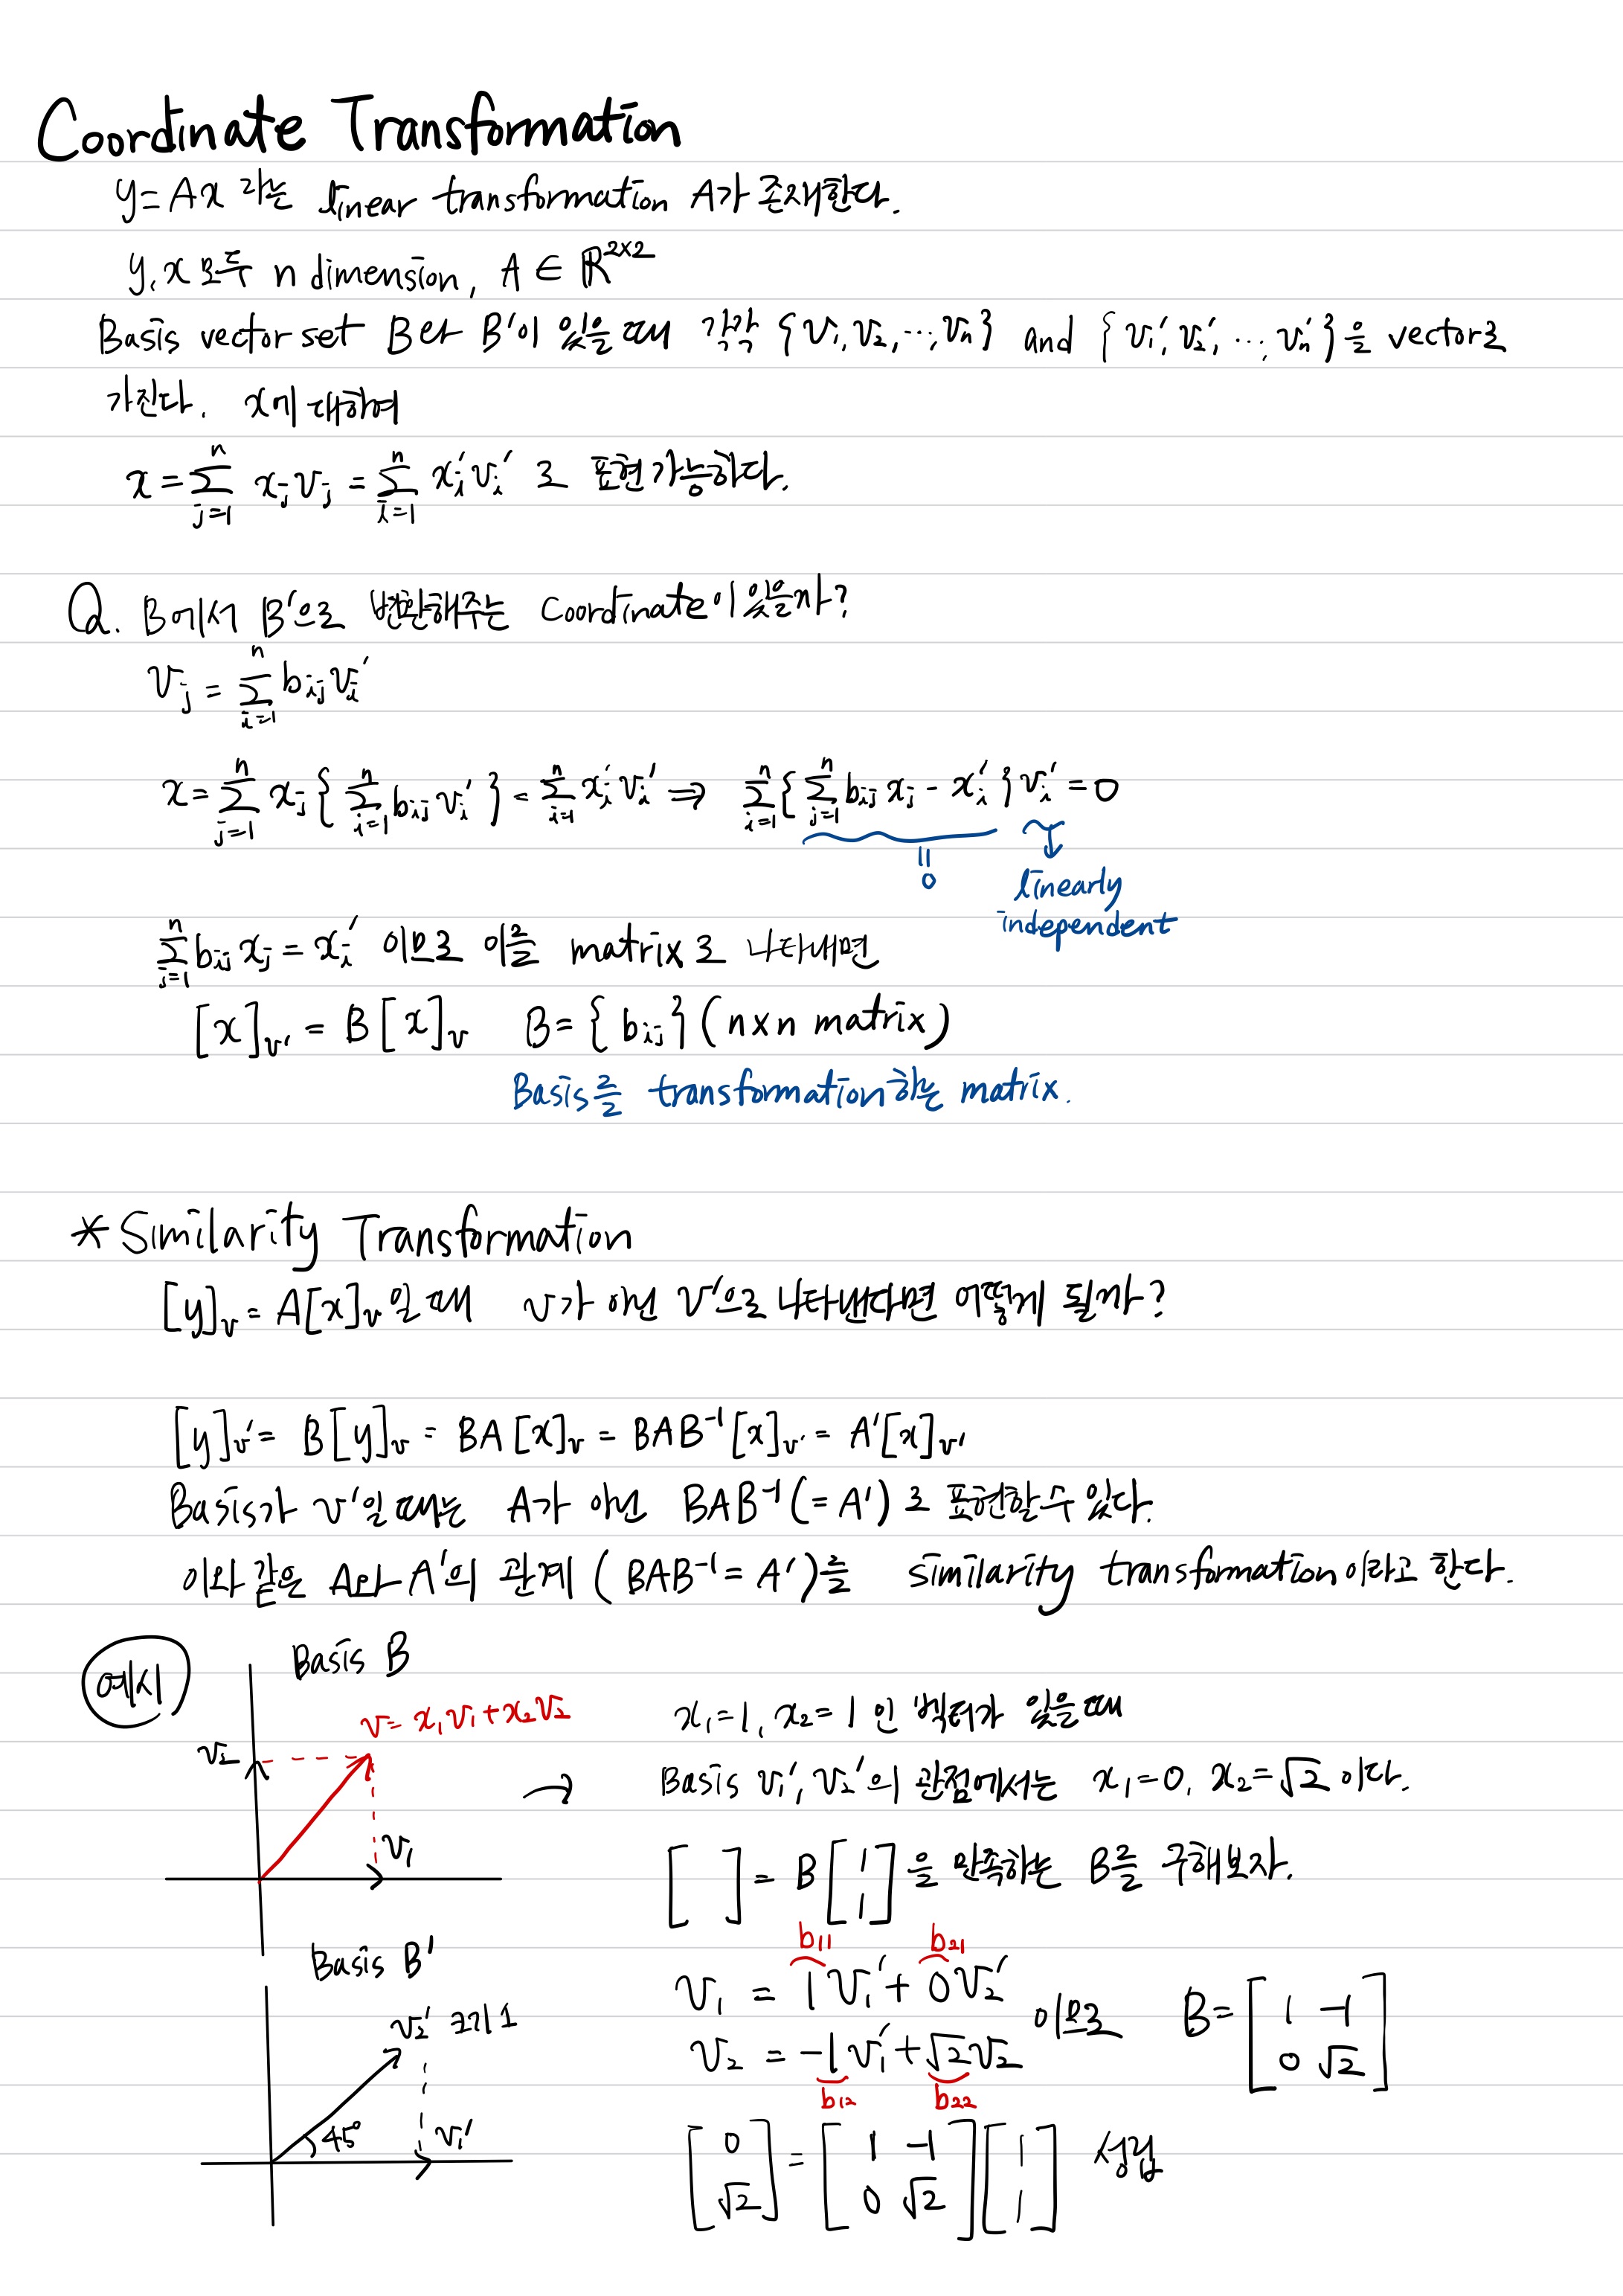 Coordinate Transformation
y=Ax 라는 linear transformation A가 존재한다.
y, x 모두 n dimension, A ∈ ℝ^{2×2}
Basis vector set B와 B'이 있을 때 각각 {v₁, v₂, ⋯, vₙ} and {v₁', v₂', ⋯, vₙ'}을 vector로
가진다. x에 대하여
x = Σ_{j=1}^{n} x_j v_j = Σ_{i=1}^{n} x_i' v_i' 로 표현가능하다.
Q. B에서 B'으로 변환해주는 Coordinate이 있을까?
v_j = Σ_{i=1}^{n} b_{ij} v_i'
x = Σ_{j=1}^{n} x_j { Σ_{i=1}^{n} b_{ij} v_i' } = Σ_{i=1}^{n} x_i' v_i' ⇒ Σ_{i=1}^{n} { Σ_{j=1}^{n} b_{ij} x_j - x_i' } v_i' = 0
= 0
linearly
independent
Σ_{j=1}^{n} b_{ij} x_j = x_i' 이므로 이를 matrix로 나타내면
[x]_{v'} = B[x]_v B = {b_{ij}} (n×n matrix)
Basis를 transformation하는 matrix.
* Similarity Transformation
[y]_v = A[x]_v 일 때 v가 아닌 v'으로 나타낸다면 어떻게 될까?
[y]_{v'} = B[y]_v = BA[x]_v = BAB⁻¹[x]_{v'} = A'[x]_{v'}
Basis가 v'일 때는 A가 아닌 BAB⁻¹(=A')로 표현할 수 있다.
이와 같은 A와 A'의 관계 (BAB⁻¹=A')를 similarity transformation이라고 한다.
예시
Basis B
v = x₁v₁+x₂v₂
v₂
v₁
x₁=1, x₂=1 인 벡터가 있을 때
→ Basis v₁', v₂'의 관점에서는 x₁=0, x₂=√2 이다.
[ ] = B [1 1] 을 만족하는 B를 구해보자.
Basis B'
v₂' 크기 1
45°
v₁'
b₁₁ b₂₁
v₁ = 1v₁' + 0v₂'
이므로 B = [1 -1
0 √2]
v₂ = -1v₁' + √2v₂
b₁₂ b₂₂
[0 = [1 -1 [1 성립
√2] 0 √2] 1]